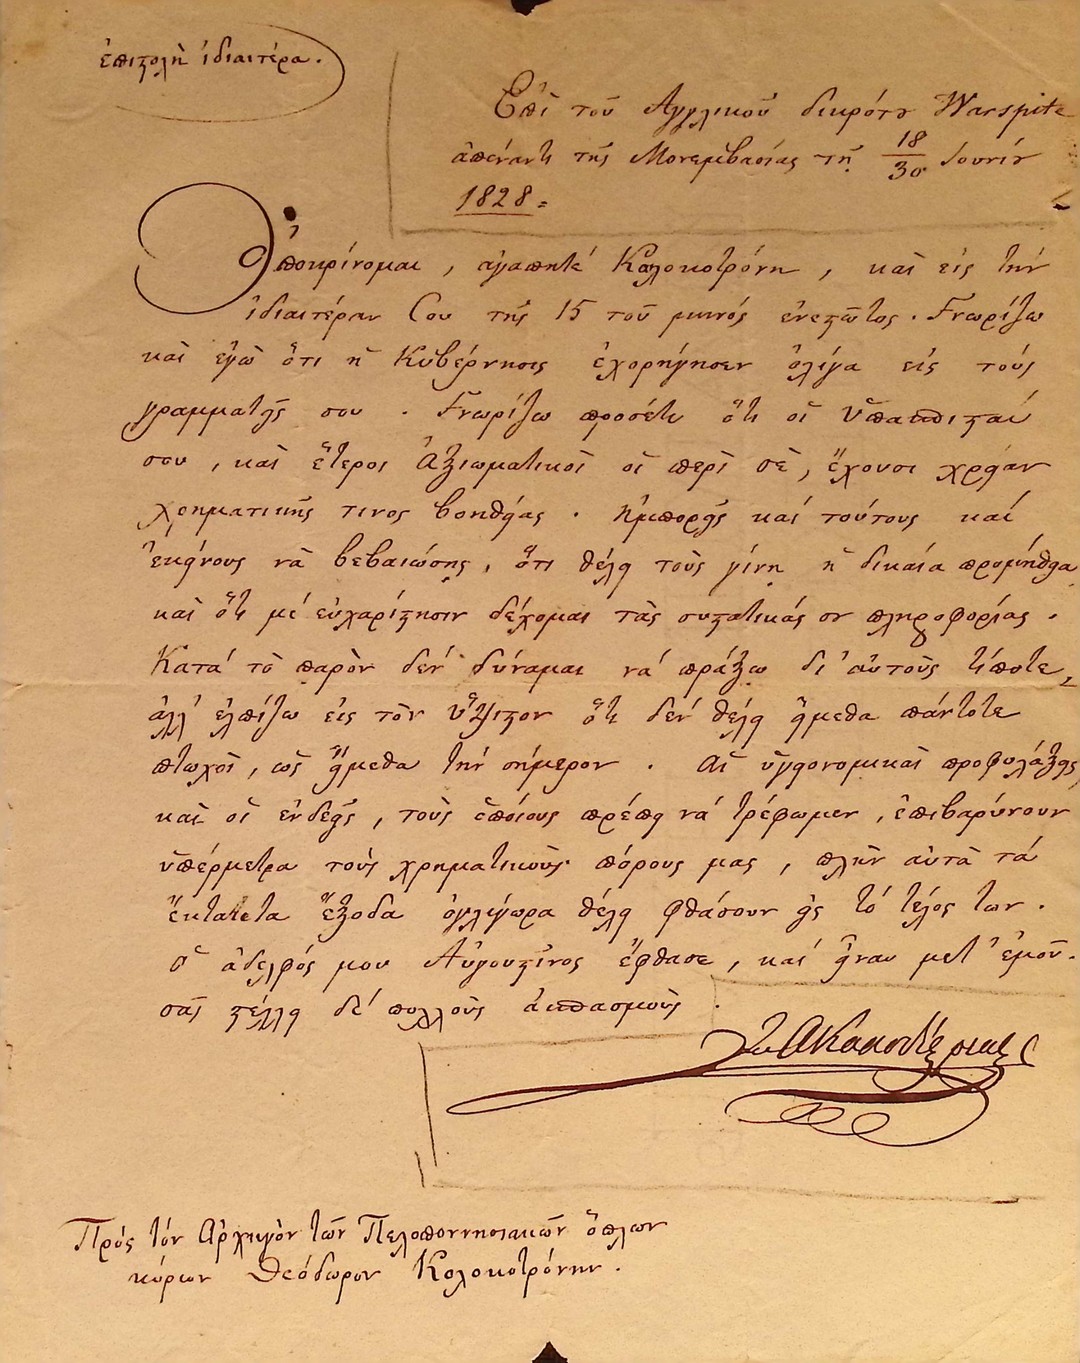 ἐπιστολὴ ἰδιαιτέρα.
Ἐπὶ τοῦ Ἀγγλικοῦ δικρότου Warspite
ἀπέναντι τῆς Μονεμβασίας τῇ 18/30 Ἰουνίου
1828.
Ἀποκρίνομαι, ἀγαπητέ Κολοκοτρόνη, καὶ εἰς τὴν
ἰδιαιτέραν Σου τῆς 15 τοῦ μηνός ἐνεστῶτος. Γνωρίζω
καὶ ἐγὼ ὅτι ἡ Κυβέρνησις ἐχορήγησεν ὀλίγα εἰς τούς
γραμματεῖς σου. Γνωρίζω προσέτι ὅτι οἱ ὑπασπισταί
σου, καὶ ἕτεροι Ἀξιωματικοὶ οἱ περὶ σὲ, ἔχουσι χρείαν
χρηματικῆς τινος βοηθείας. Ἠμπορεῖς καί τούτους καί
ἐκείνους νὰ βεβαιώσῃς, ὅτι θέλει τοὺς γίνῃ ἡ δικαία προμήθεια
καὶ ὅτι μέ εὐχαρίστησιν δέχομαι τὰς συστατικάς σου πληροφορίας.
Κατά τὸ παρὸν δέν δύναμαι νά πράξω δι' αὐτοὺς τίποτε,
ἀλλ' ἐλπίζω εἰς τὸν ὕψιστον ὅτι δέν θέλει ἤμεθα πάντοτε
πτωχοὶ, ὡς ἤμεθα τὴν σήμερον. Αἱ ὑγειονομικαὶ προφυλάξεις,
καὶ οἱ ἐνδεεῖς, τοὺς ὁποίους πρέπει νά τρέφωμεν, ἐπιβαρύνουν
ὑπέρμετρα τοὺς χρηματικοὺς πόρους μας, πλὴν αὐτὰ τά
ἔκτακτα ἔξοδα ὀγλίγωρα θέλει φθάσουν εἰς τό τέλος των.
Ὁ ἀδελφός μου Αὐγουστῖνος ἔφθασε, καί εἶναι μετ' ἐμοῦ.
σᾶς στέλλει δέ πολλοὺς ἀσπασμούς.
Ἰω Α Καποδίστριας
Πρός τόν Ἀρχηγὸν τῶν Πελοποννησιακῶν ὅπλων
κύριον Θεόδωρον Κολοκοτρόνην.